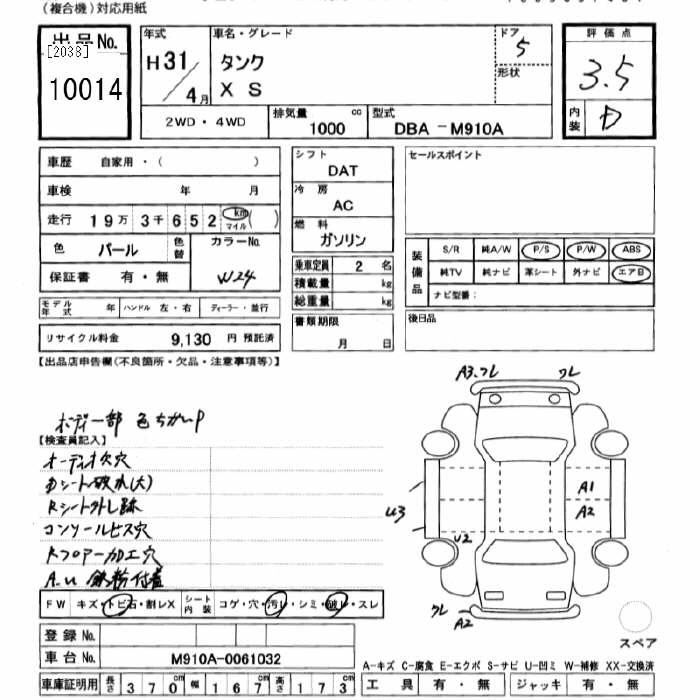 (複合機)対応用紙
出品No.
[2038]
10014
年式
H31/4月
車名・グレード
タンク
X S
ドア
5
形状
評価点
3.5
内装
D
2WD・4WD
排気量 cc
1000
型式
DBA-M910A
車歴 自家用・( )
車検 年 月
走行 19万 3千 6 5 2 km マイル ( )
色 パール 色替
カラーNo.
W24
保証書 有・無
モデル年式 年 ハンドル 左・右 ディーラー・並行
リサイクル料金 9,130 円 預託済
シフト
DAT
冷房
AC
燃料
ガソリン
乗車定員 2 名
積載量 kg
総重量 kg
書類期限
月 日
セールスポイント
装備品
S/R 純A/W P/S P/W ABS
純TV 純ナビ 革シート 外ナビ エアB
ナビ型番:
後日品
【出品店申告欄(不良箇所・欠品・注意事項等)】
ボディ一部 色ちがいP
【検査員記入】
オーディオ欠穴
Dシート破れ(大)
Rシート外し跡
コンソールビス穴
Rフロアー加工穴
A.U 鉄粉付着
FW キズ・トビ石・割レX
シート内装 コゲ・穴・汚レ・シミ・破レ・スレ
登録No.
車台No. M910A-0061032
車庫証明用 長さ 370cm 幅 167cm 高さ 173cm
A3.ワレ
ワレ
A1
A2
U3
U2
ワレ
A2
スペア
A-キズ C-腐食 E-エクボ S-サビ U-凹ミ W-補修 XX-交換済
工具 有・無 ジャッキ 有・無